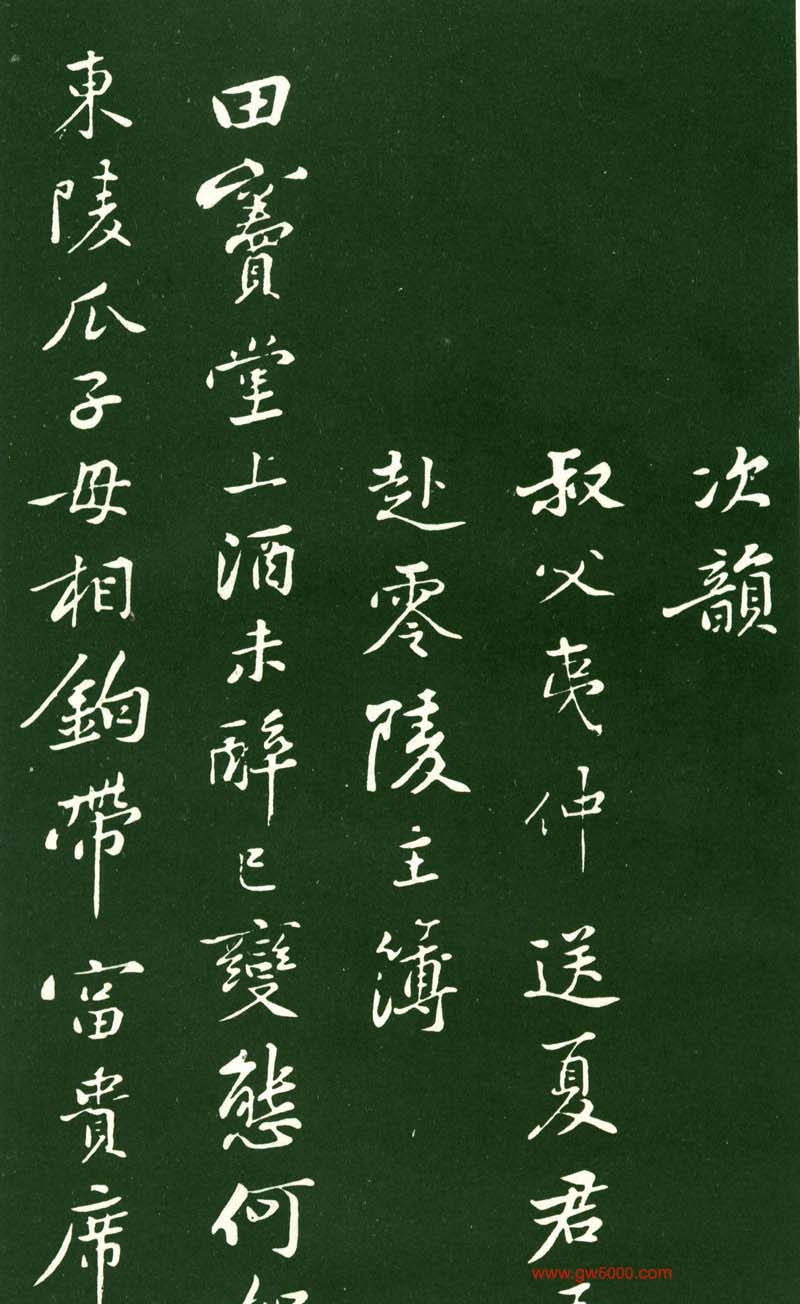 次韻
叔父夷仲送夏君
赴零陵主簿
田竇堂上酒未醉已變態何
東陵瓜子母相鉤帶富貴席
www.gw5000.com